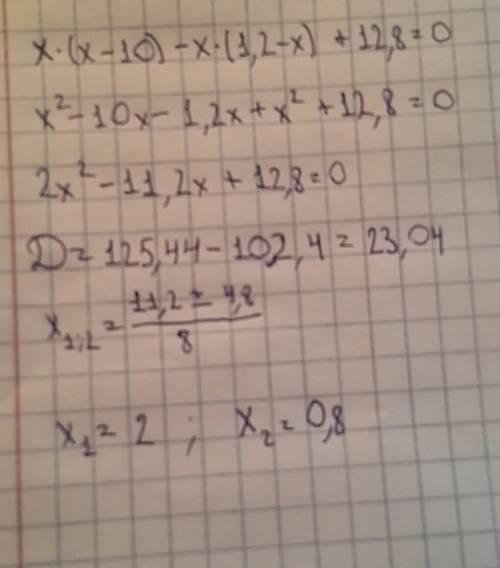 x·(x-10)-x·(1,2-x)+12,8=0
x²-10x-1,2x+x²+12,8=0
2x²-11,2x+12,8=0
D=125,44-102,4=23,04
x₁;₂=(11,2±4,8)/8
x₁=2 ; x₂=0,8